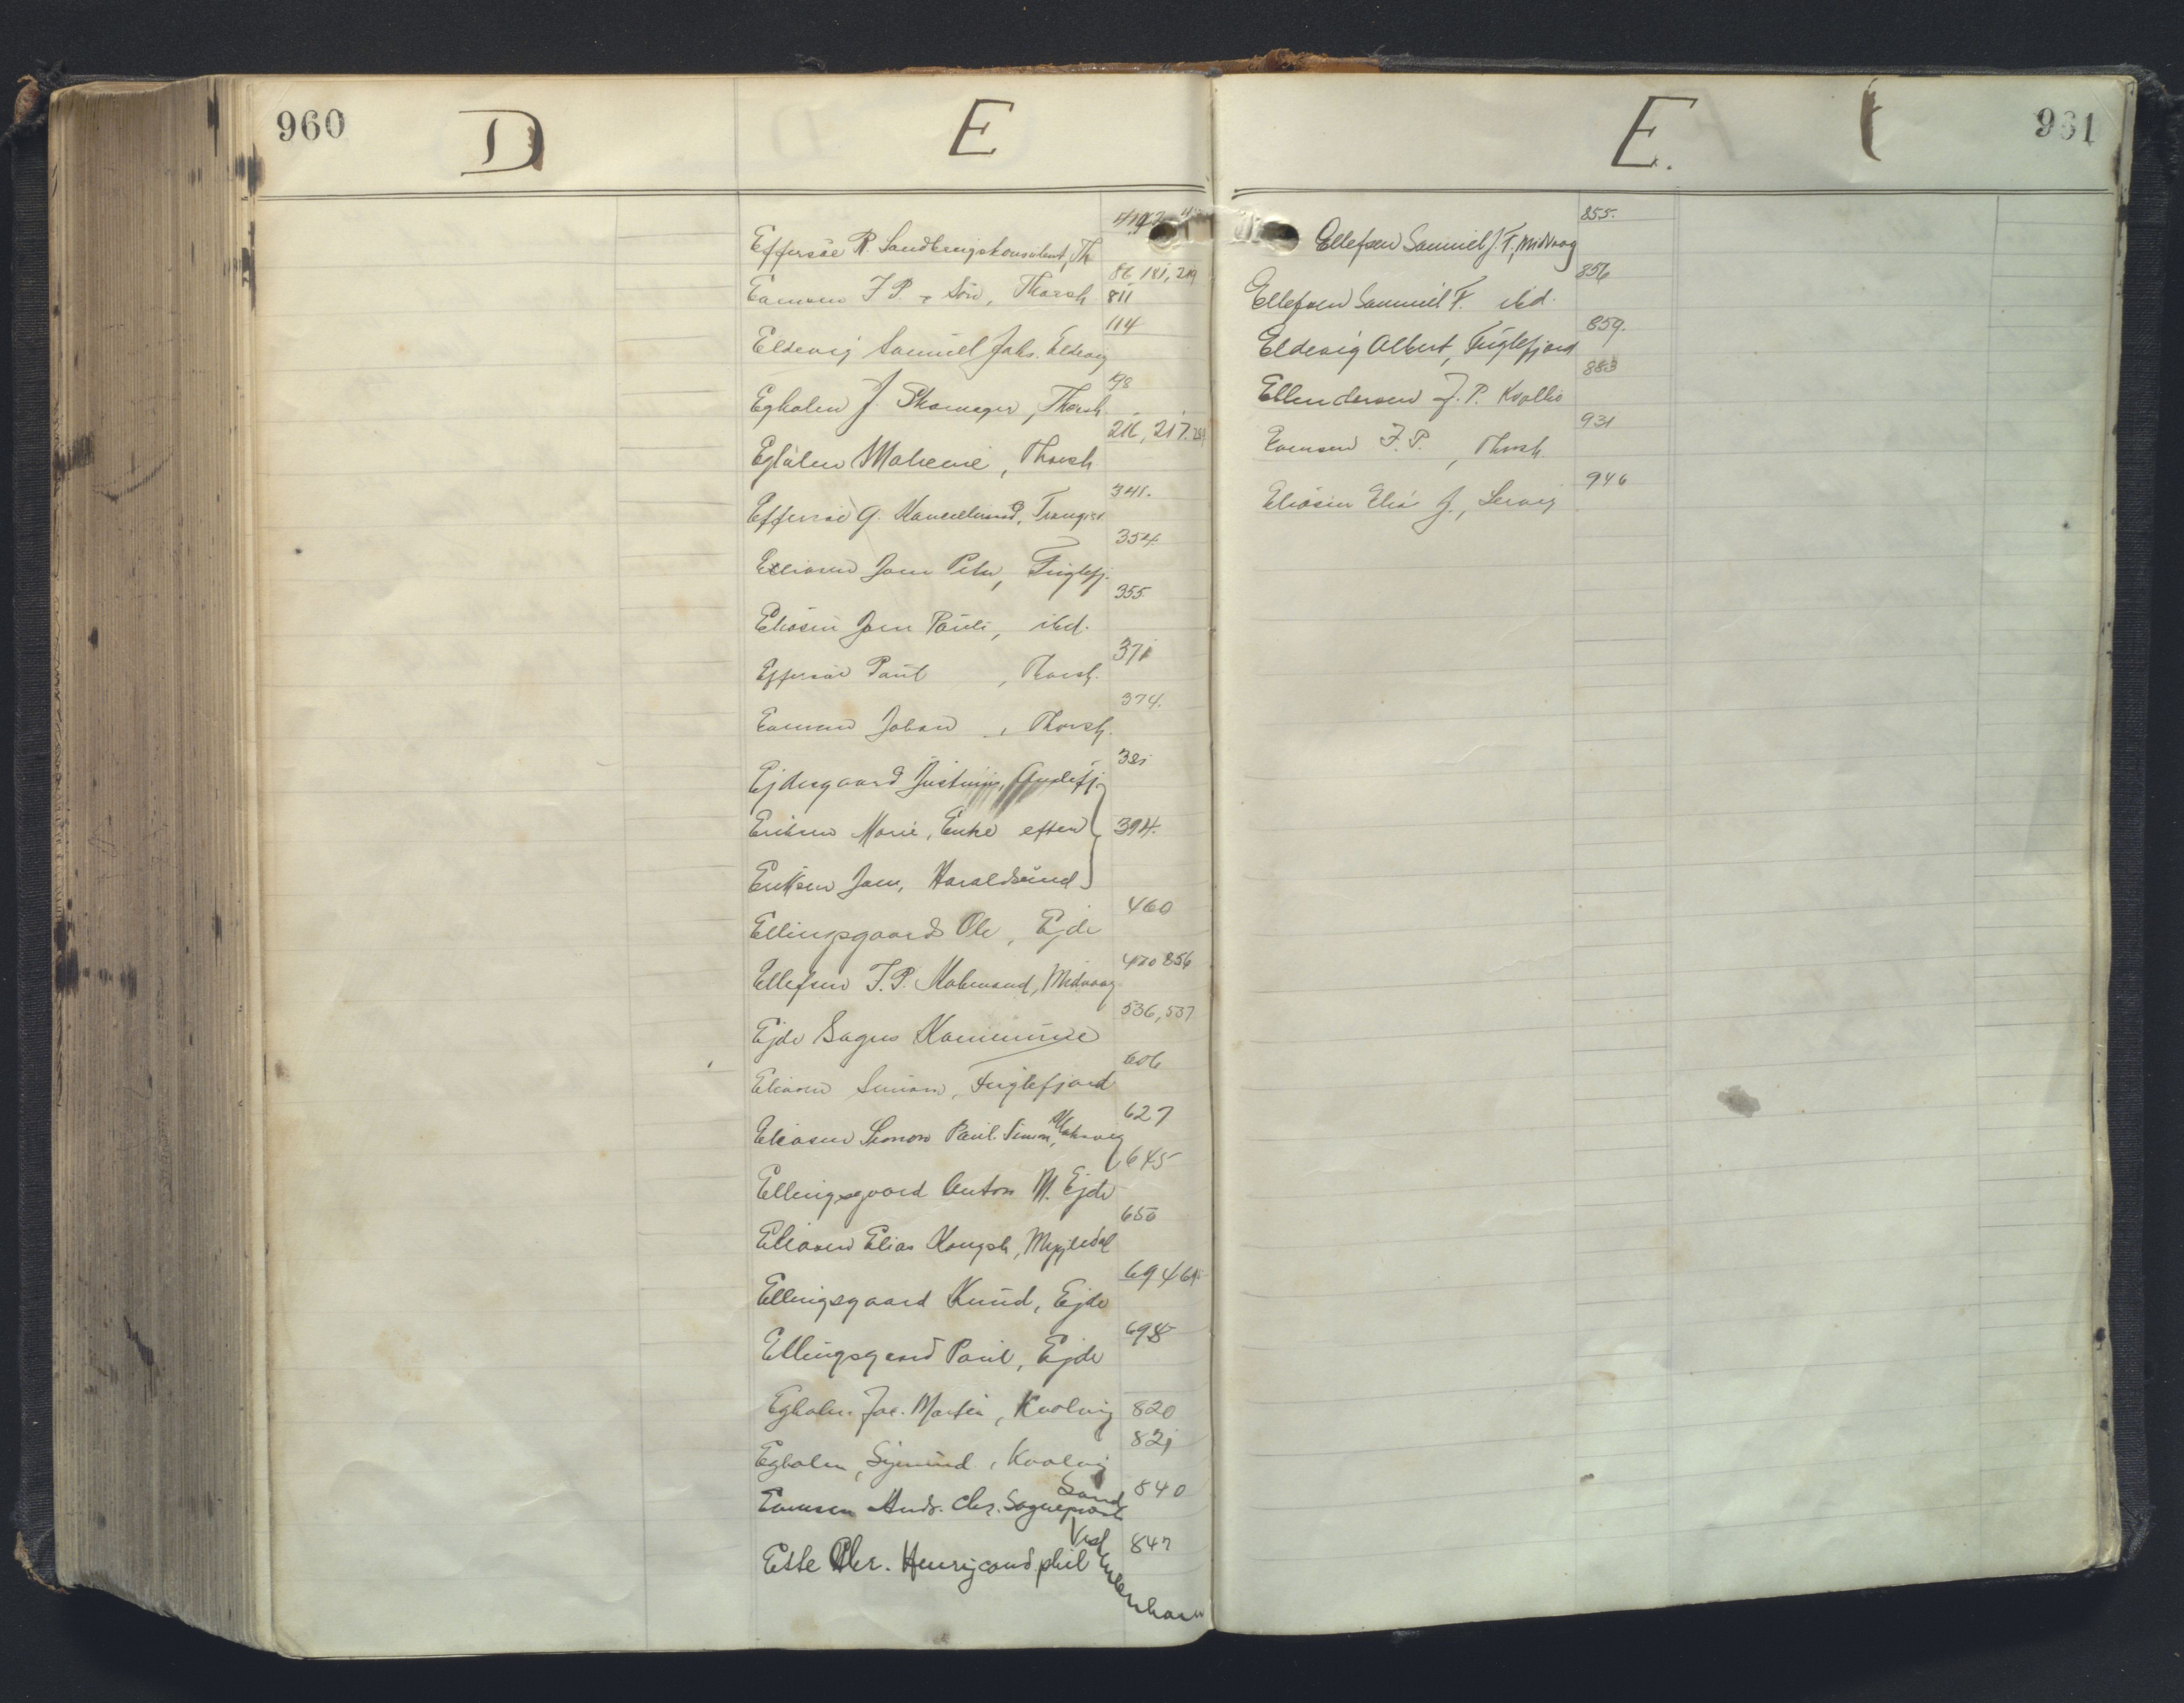 960
D
E
Effersøe R Landbrugskonsulent, Th
Enmsen J. P. & Søn, Thorsh 86 181, 219
811
Eldevig Samuel Johs. Eldevig 114
Egholm J. Skomager, Thorsh. 198
Egholm Malene, Thorsh. 216, 217.
Effersøe G. Kancelliraad, Trangisv. 341.
Eliasen Joen Peter, Fuglefj. 354.
Eliasen Joen Pauli, ibd. 355.
Effersøe Poul, Thorsh. 371
Enmsen Johan, Thorsh. 374.
Ejdesgaard Justinus, Andefj. 381
Eriksen Marie, Enke efter 394.
Eriksen Joen, Haraldsund
Ellingsgaard Ole, Ejde 460
Ellefsen J. P. Købmand, Midvaag 470 856
Ejde Sogns Kommune 536, 537
Eliasen Simon, Fuglefjord 606
Eliasen Simon Paul. Simon, 627
Ellingsgaard Anton M. Ejde 645
Eliasen Elias Kongsb, Mygledal 650
Ellingsgaard Knud, Ejde 694
Ellingsgaard Poul, Ejde 698
Egholm Jac. Martin, Kvalvig 820
Egholm, Sigmund, Kvalvig 821
Sand
Enmsen Andr. Chr. Sognepræst 840
Esbe Chr. Henrij cand. phil 847
E.
961
Ellefsen Samuel J. F, Midvaag 855.
Ellefsen Samuel F. ibd. 856
Eldevig Albert, Fuglefjord 859.
Ellendersen J. P. Kvalbø 883
Enmsen J. P., Thorsh. 931
Eliasen Elia J., Lervig 946